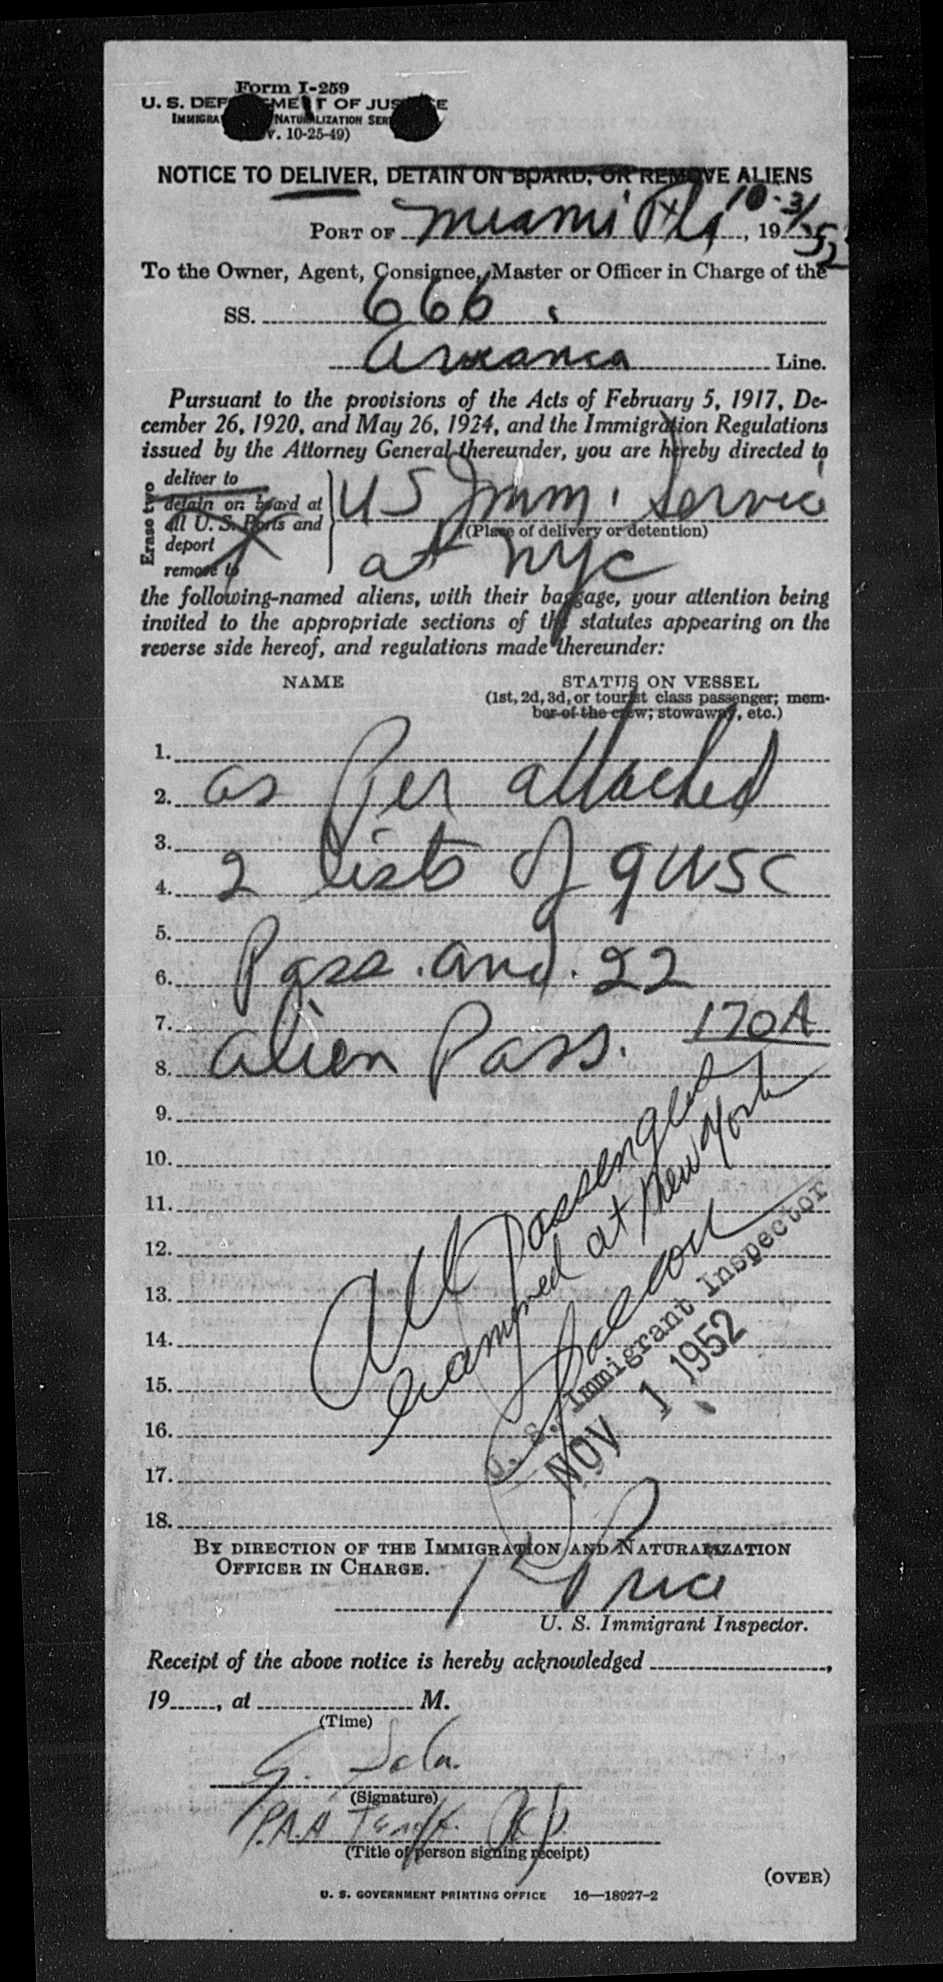 Form I-259
U. S. DEPARTMENT OF JUSTICE
IMMIGRATION NATURALIZATION SERVICE
(Rev. 10-25-49)
NOTICE TO DELIVER, DETAIN ON BOARD, OR REMOVE ALIENS
PORT OF Miami Fla 10-31, 1952
To the Owner, Agent, Consignee, Master or Officer in Charge of the
SS. 666
Avianca Line.
Pursuant to the provisions of the Acts of February 5, 1917, De-
cember 26, 1920, and May 26, 1924, and the Immigration Regulations
issued by the Attorney General thereunder, you are hereby directed to
Erase two
deliver to
detain on board at
all U. S. Ports and
deport
remove to
US Imm. Service
(Place of delivery or detention)
at NYC
the following-named aliens, with their baggage, your attention being
invited to the appropriate sections of the statutes appearing on the
reverse side hereof, and regulations made thereunder:
NAME STATUS ON VESSEL
(1st, 2d, 3d, or tourist class passenger; mem-
ber of the crew; stowaway, etc.)
1.
2. as per attached
3.
4. 2 lists of 9 USC
5.
6. Pass. and 22
7. 170A
8. alien Pass.
9.
10.
11.
12.
13.
14.
15.
16.
17.
18.
All passengers
examined at New York
U. S. Immigrant Inspector
NOV 1 1952
BY DIRECTION OF THE IMMIGRATION AND NATURALIZATION
OFFICER IN CHARGE.
Price
U. S. Immigrant Inspector.
Receipt of the above notice is hereby acknowledged,
19, at M.
(Time)
G. Sola
(Signature)
P.A.A
(Title of person signing receipt)
(OVER)
U. S. GOVERNMENT PRINTING OFFICE 16—18927-2